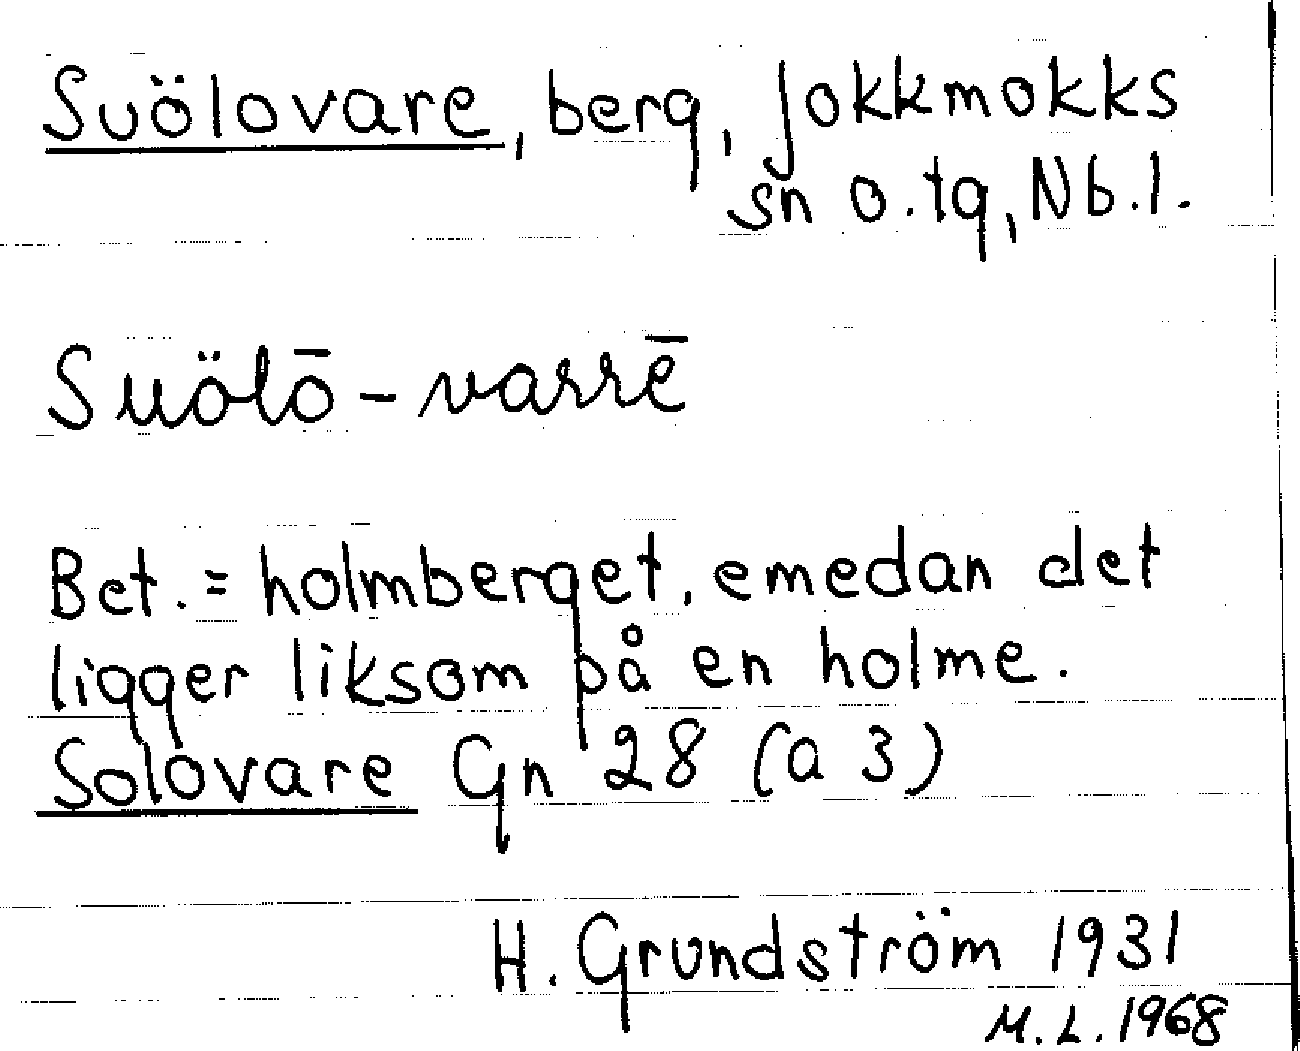 Suölovare, berg, Jokkmokks
sn o. tg, Nb.l.
Suölō-varrē
Bet. = holmberget, emedan det
ligger liksom på en holme.
Solovare Gn 28 (a 3)
H. Grundström 1931
M.L. 1968